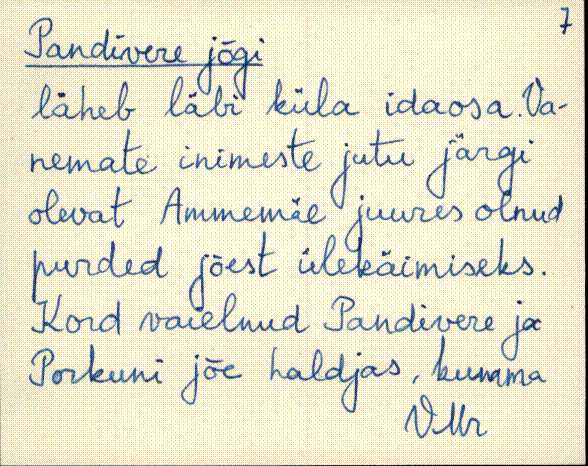 7
Pandivere jõgi
läheb läbi küla idaosa. Va-
nemate inimeste jutu järgi
olevat Ammemäe juures olnud
purded jõest ülekäimiseks.
Kord vaielnud Pandivere ja
Porkuni jõe haldjas, kumma
VMr